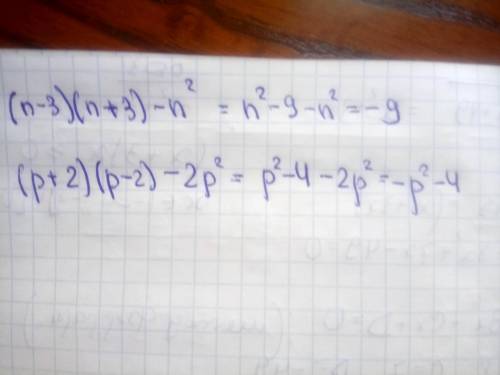 (n-3)(n+3)-n² = n²-9-n²=-9
(p+2)(p-2)-2p²= p²-4-2p²=-p²-4